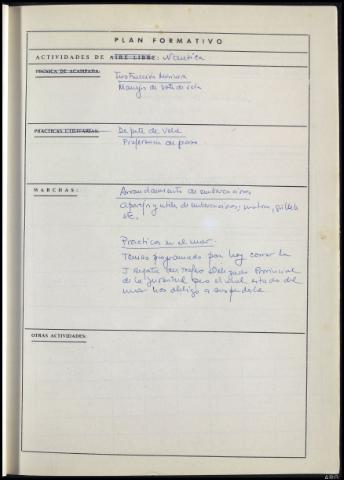 PLAN FORMATIVO
ACTIVIDADES DE AIRE LIBRE: Nautica
TECNICA DE ACAMPADA: Instrucción Marinera
Manejo de bote de vela
PRACTICAS UTILITARIAS: Deporte de Vela
Preferencia de paso
MARCHAS: Arrendamiento de embarcaciones
aparejo y útiles de embarcaciones; motores,
etc.
Practicas en el mar.
Temas programado para hoy correr la
I regata del trofeo Delegado Provincial
de la Juventud pero el mal estado del
mar nos obligo a suspenderla
OTRAS ACTIVIDADES: